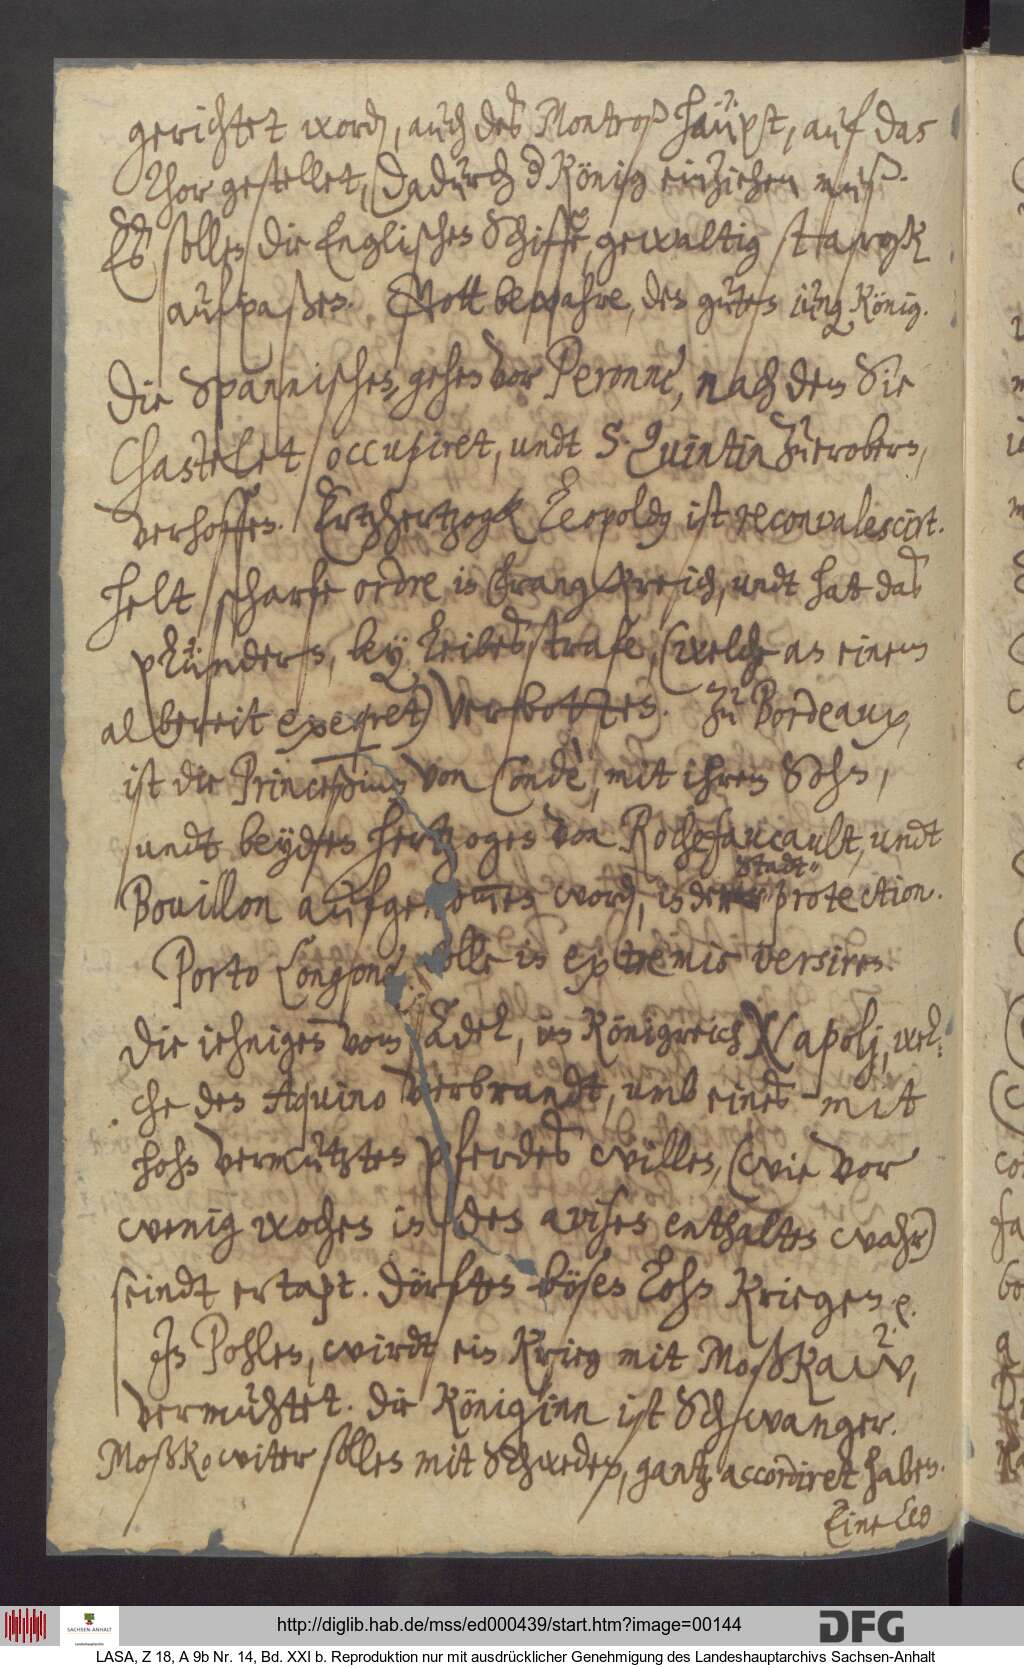 gerichtet word, auch des Montroß häupt, auf das
Thor gestellet, dadurch d König einziehen muß.
Es sollen die Englischen Schiffe, gewaltig starck
aufpaßen. Gott bewahre, den guten iung König.
Die Spannischen, gehen vor Peronne, nach dem Sie
Chastelet occupiret, undt S. Quintin zu erobern,
verhoffen. Ertzhertzogk Leopoldg ist reconvalescirt.
helt scharfe ordre in Franckreich, undt hat das
plündern, bey Leibesstrafe, (welche an einem
albereit exequiret) verbotten. Zu Bordeaux,
ist die Princeßinn von Condè, mit ihrem Sohn,
undt beyden hertzogen von Rochefaucault, undt
Bouillon aufgenommen word, in der Stadt protection.
Porto Longone solle in extremis versiren.
Die iehnigen vom Adel, im Königreich Napolj, wel-
che den Aquino verbrandt, umb eines mit
hohn vermutzten Pferdes willen, (wie vor
wenig wochen in den avisen enthalten wahr)
seindt ertapt. Dörften bösen Lohn kriegen e.
In Pohlen, wirdt ein Krieg mit Moßkaw,
vermuhtet. Die Königinn ist Schwanger.
Moßkowiter sollen mit Schweden, gantz accordiret haben.
Eine Leg
http://diglib.hab.de/mss/ed000439/start.htm?image=00144
SACHSEN-ANHALT
DFG
LASA, Z 18, A 9b Nr. 14, Bd. XXI b. Reproduktion nur mit ausdrücklicher Genehmigung des Landeshauptarchivs Sachsen-Anhalt